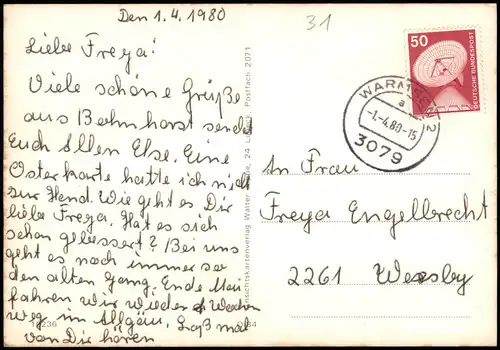 Den 1.4.1980
31
Liebe Freya!
Viele schöne Grüße
aus Bohnhorst sendet
Euch Allen Else. Eine
Osterkarte hatte ich nicht
zur Hand. Wie geht es Dir
liebe Freya. Hat es sich
schon gebessert? Bei uns
geht es noch immer so
den alten Gang. Ende Mai
fahren wir wieder 4 Wochen
weg im Allgäu. Laß mal
von Dir hören
Ansichtskartenverlag Walter 24 Lübeck, Postfach 2071
50
DEUTSCHE BUNDESPOST
WARMSEN 2
a
-1.-4.80-15
3079
An Frau
Freya Engelbrecht
2261 Weesby